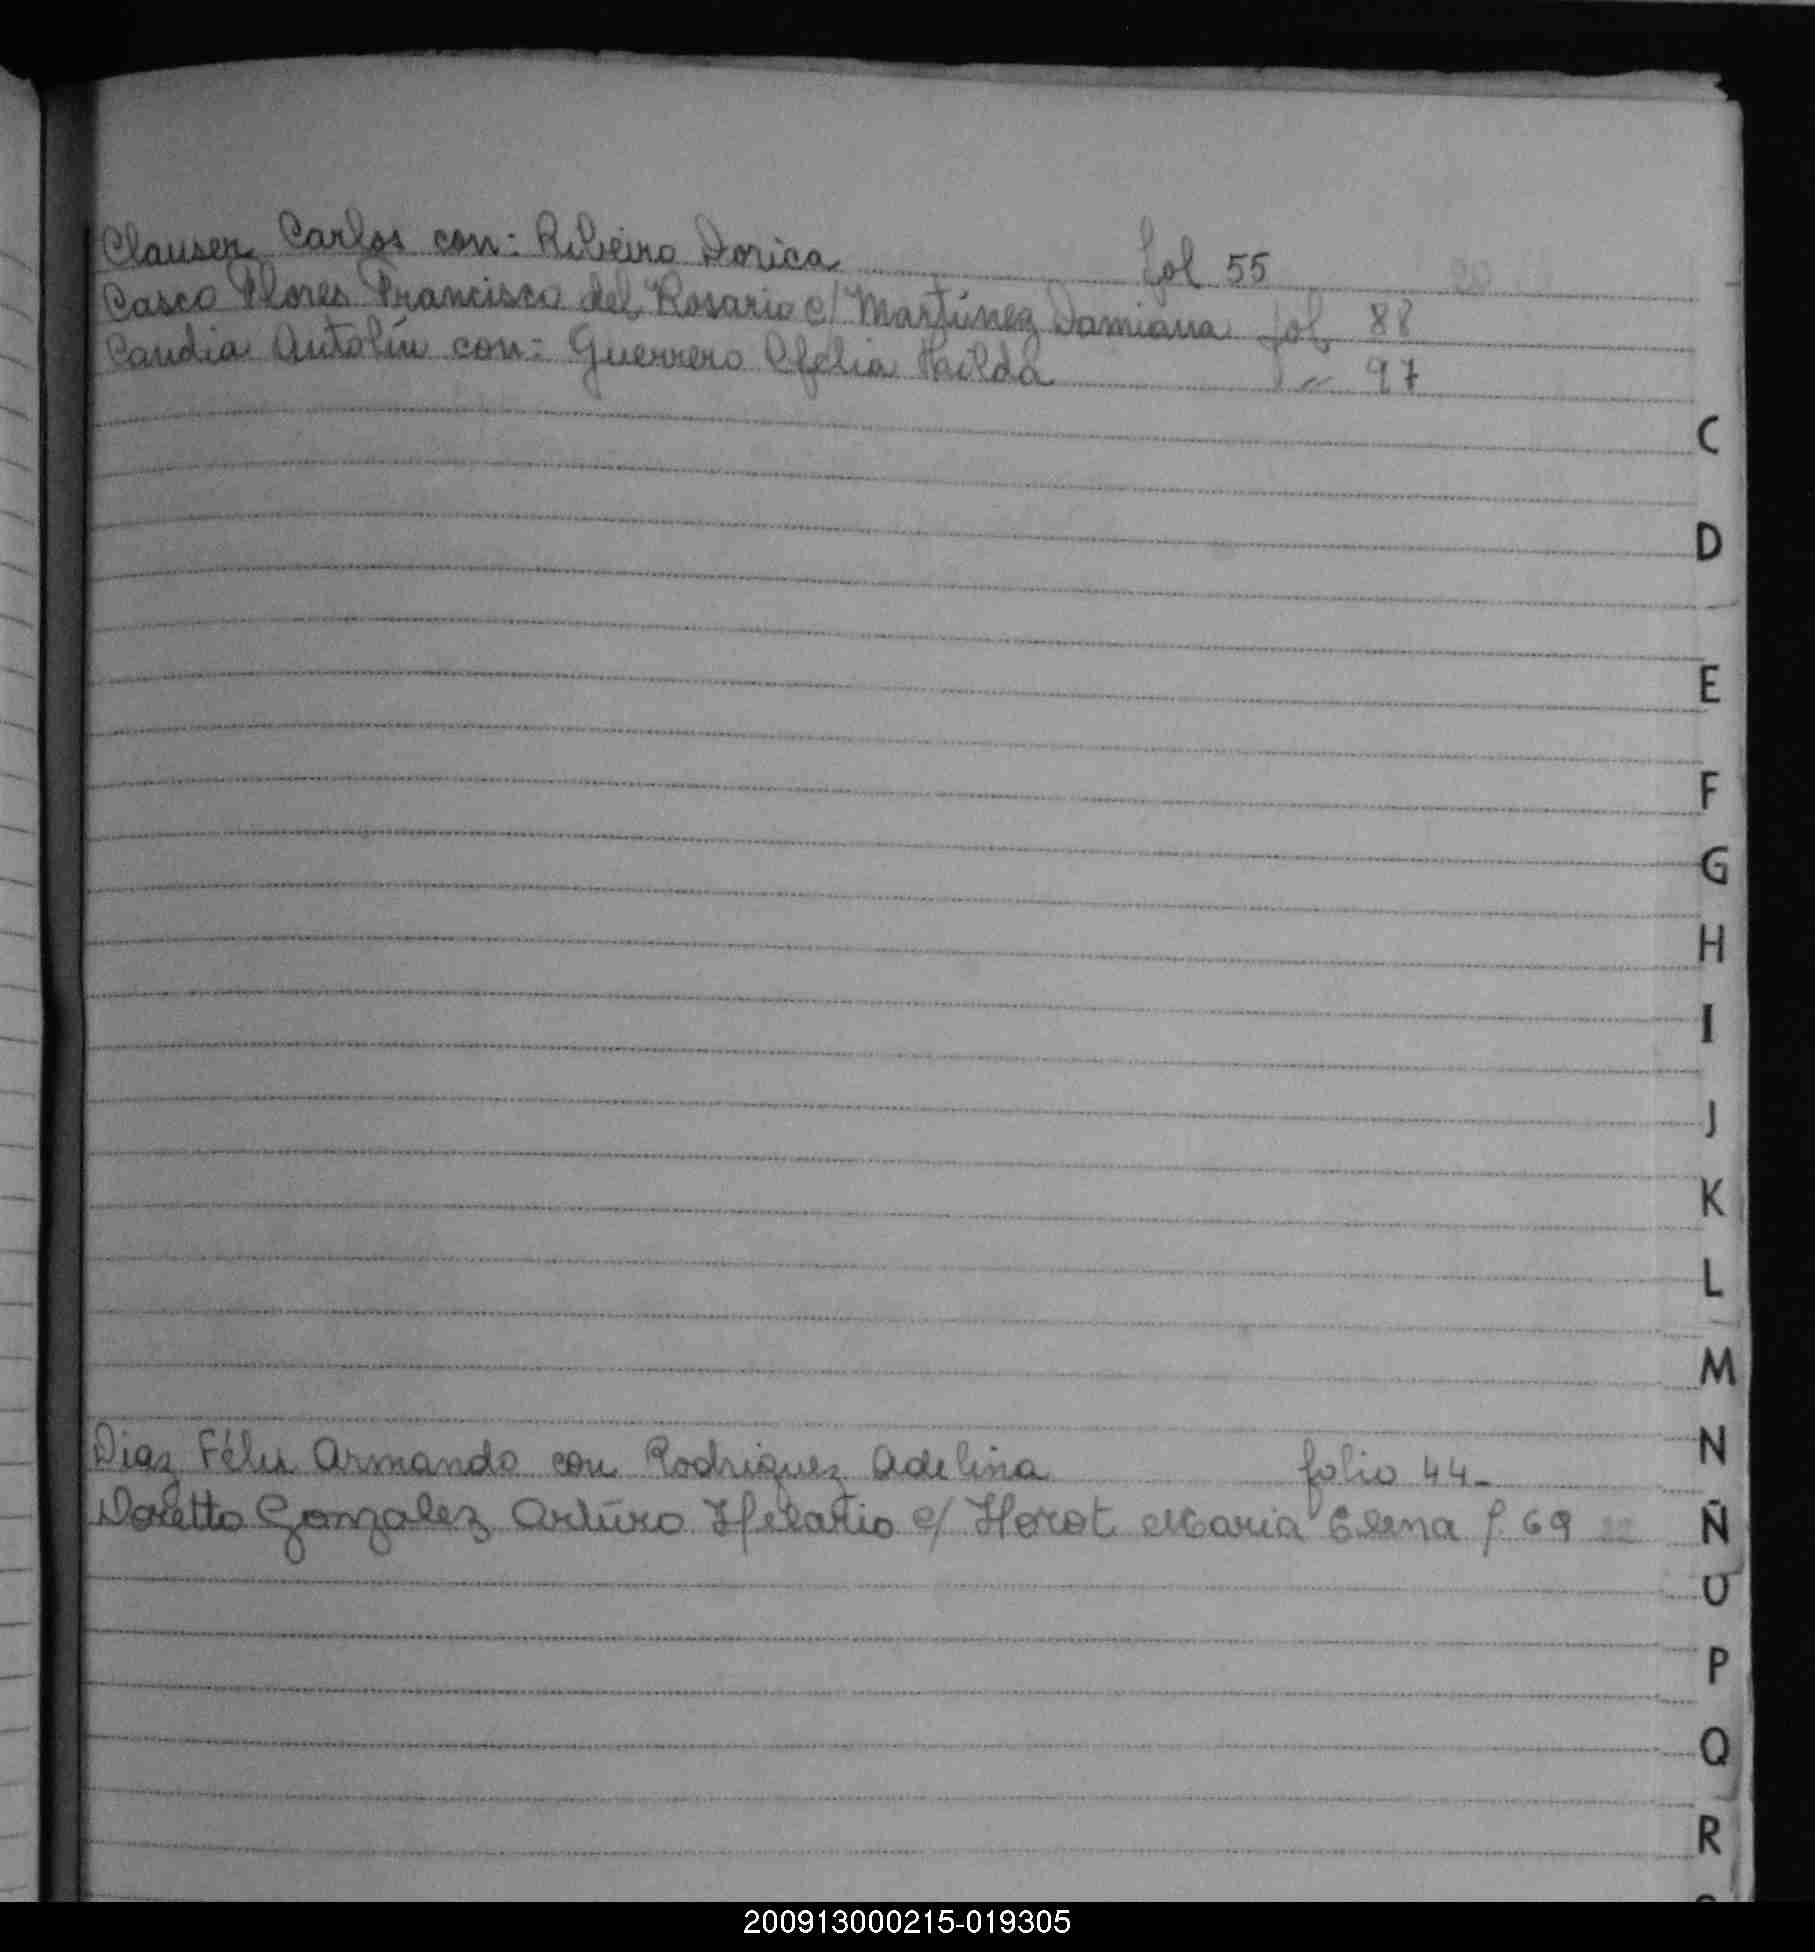 Clauser Carlos con: Ribeiro Dorica fol 55
Casco Flores Francisco del Rosario c/ Martínez Damiana fol 88
Candia Antolín con: Guerrero Ofelia Hailda " 97
C
D
E
F
G
H
I
J
K
L
M
Diaz Féliz Armando con Rodriguez Adelina folio 44-
N
Doretto Gonzalez Arturo Hilario c/ Horot Maria Elena f. 69
Ñ
O
P
Q
R
200913000215-019305